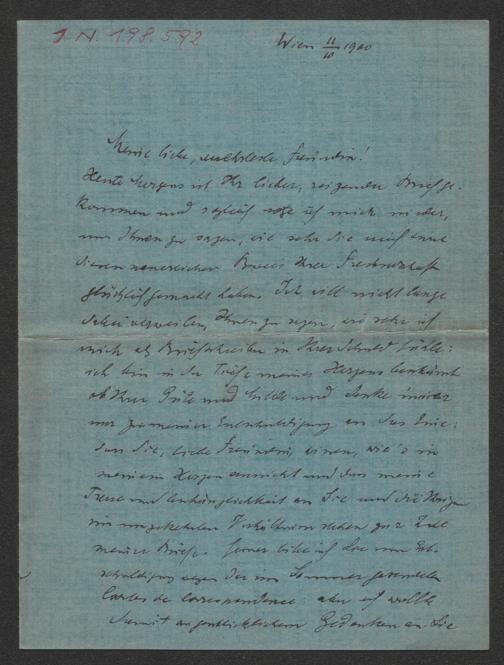 J. N. 198.592
Wien 11/10 1900
Meine liebe, verehrteste Freundin!
Heute Morgens ist Ihr lieber, reizender Brief ge-
kommen und sogleich setze ich mich nieder,
um Ihnen zu sagen, wie sehr Sie mich mit
diesem neuerlichen Beweis Ihrer Freundschaft
glücklich gemacht haben. Ich will nicht lange
dabei verweilen, Ihnen zu sagen, wie sehr ich
mich als Briefschreiber in Ihrer Schuld fühle:
ich bin in der Tiefe meines Herzens
ob Ihrer Güte und Milde und denke immer
nur zu meiner Entschuldigung an das Eine:
dass Sie, liebe Freundin, wissen, wie's in
meinem Herzen aussieht und dass meine
Treue und Anhänglichkeit an Sie und die Ihrigen
im umgekehrten Verhältnisse stehen zur Zahl
meiner Briefe. Ferner bitte ich Sie um Ent-
schuldigung wegen der im Sommer gesendeten
Cartes de correspondence aber ich wollte
damit augenblicklichem Gedanken an Sie